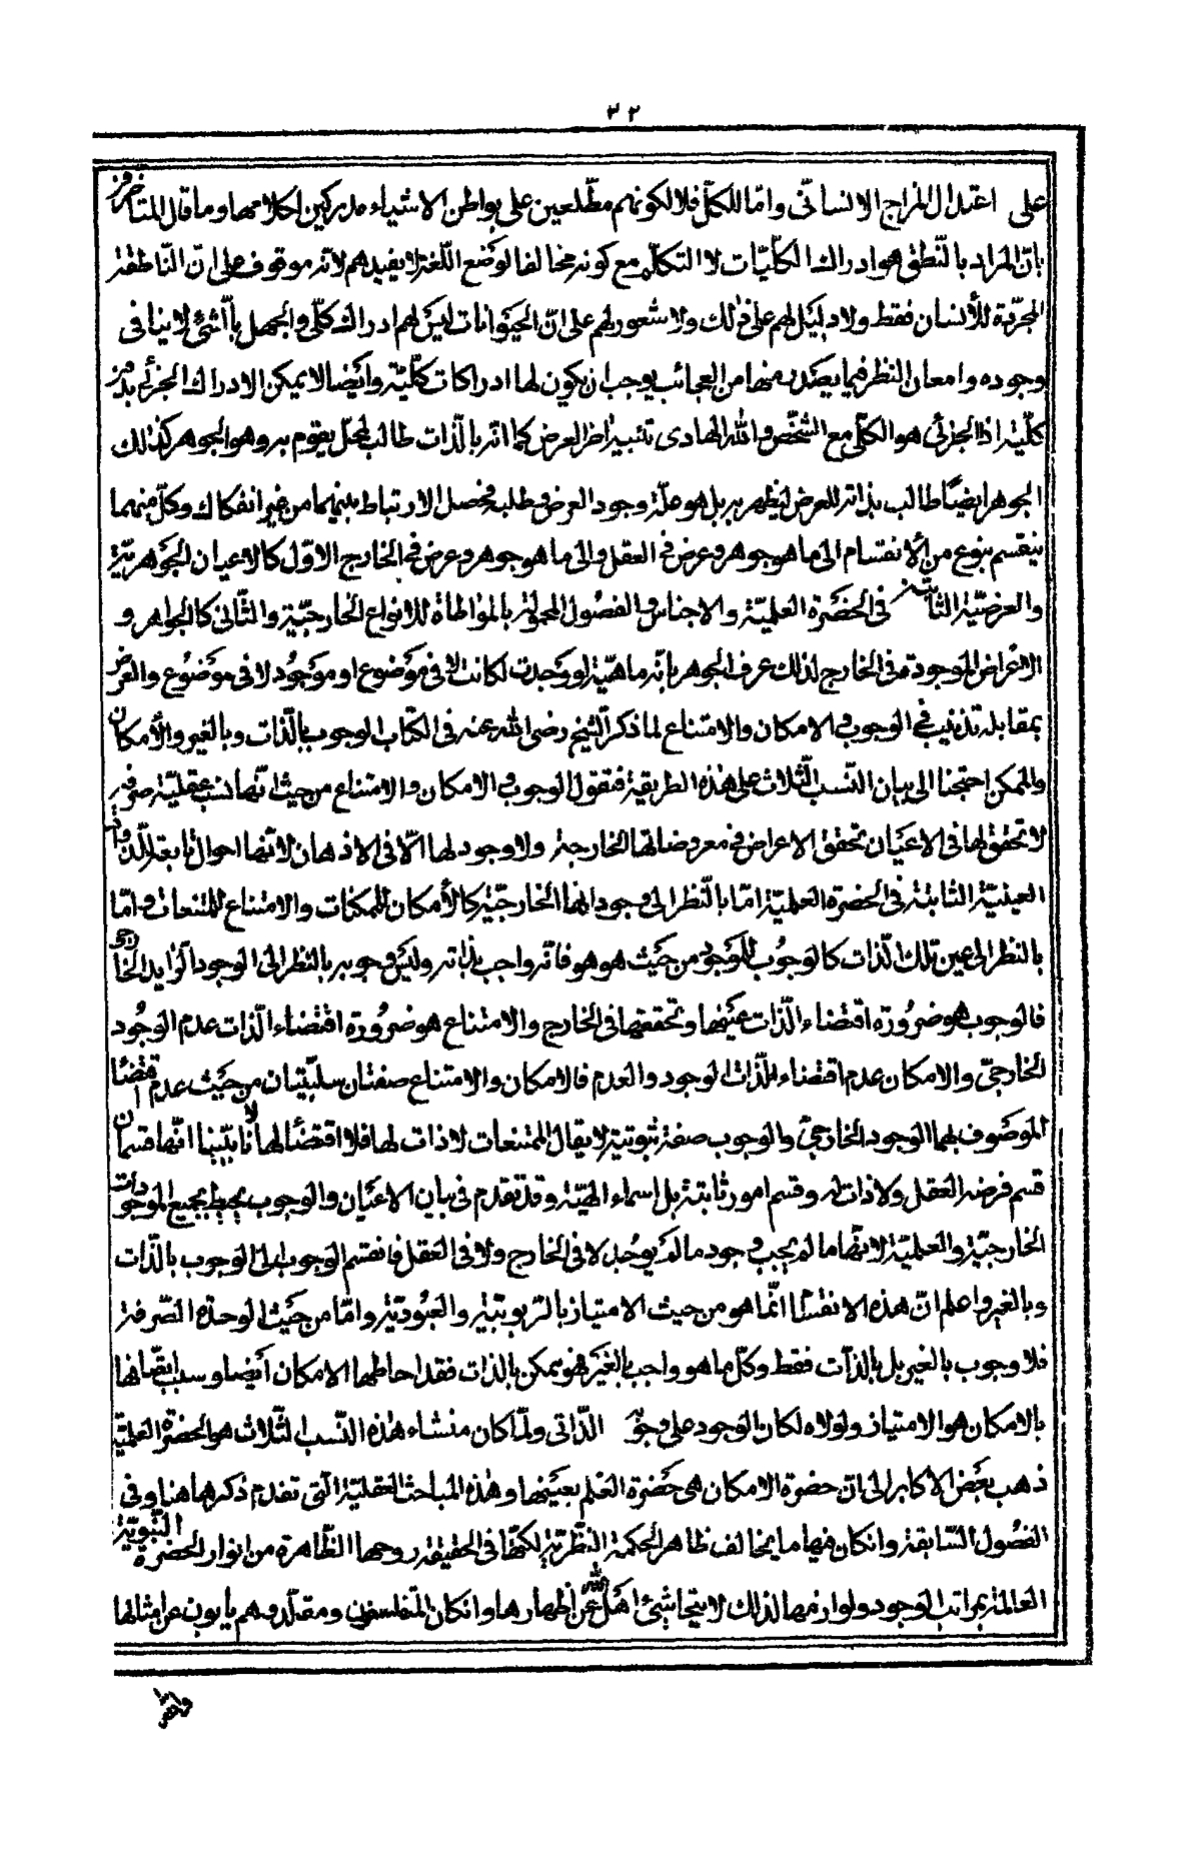 ٣٢
على اعتدال المزاج الانسانّى وامّا للكمّل فلا لكونهم مطّلعين على بواطن الاشياء مدركين لكلامها وما قال المتأخرون
بانّ المراد بالنّطق هو ادراك الكلّيّات لا التكلّم مع كونه مخالفا لوضع اللّغة لا يفيدهم لانّه موقوف على انّ النّاطقة
المجرّدة للأنسان فقط ولا دليل لهم على ذلك ولا شعور لهم على انّ الحيوانات ليس لهم ادراك كلّى والجهل بالشئ لا ينافى
وجوده وامعان النظر فيما يصدر منها من العجائب يوجب ان يكون لها ادراكات كلّيّة وايضا لا يمكن الادراك الجزئى بدون
كلّيّه اذ الجزئى هو الكلّى مع التشخّص والله الهادى تنبيه اخر العرض كما انّه بالذّات طالب لمحل يقوم به وهو الجوهر كذلك
الجوهر ايضا طالب بذاته للعرض ليظهر به بل هو علّة وجود العرض وطلبه فحصل الارتباط بينهما من غير انفكاك وكلّ منهما
ينقسم بنوع من الانقسام الى ما هو جوهر وعرض فى العقل والى ما هو جوهر وعرض فى الخارج الاوّل كالاعيان الجوهريّة
والعرضيّة الثابتة فى الحضرة العلميّة والاجناس والفصول المحمولة بالمواطاة للانواع الخارجيّة والثّانى كالجواهر و
الاعراض الموجودة فى الخارج لذلك عرف الجوهر بانّه ماهيّة لو وجدت لكانت لا فى موضوع او موجود لا فى موضوع والعرض
بمقابله تذنيب فى الوجوب والامكان والامتناع لما ذكر الشيخ رضى الله عنه فى الكتاب الوجوب بالذّات وبالغير والأمكان
والممكن احتجنا الى بيان النّسب الثّلاث على هذه الطريقة فنقول الوجوب والامكان والامتناع من حيث انّها نسب عقليّة صرفة
لا تحقق لها فى الاعيان تحقق الاعراض فى معروضاتها الخارجة ولا وجود لها الّا فى الاذهان لانّها احوال تابعة للذّوات
العينيّة الثابتة فى الحضرة العلميّة امّا بالنّظر الى وجوداتها الخارجيّة كالأمكان للممكنات والامتناع للممتنعات وامّا
بالنظر الى عين تلك الذّات كالوجوب للوجود من حيث هو هو فانّه واجب بذاته وليس وجوبه بالنظر الى الوجود الزايد الخارجى
فالوجوب هو ضرورة اقتضاء الذّات عينها وتحققها فى الخارج والامتناع هو ضرورة اقتضاء الذّات عدم الوجود
الخارجىّ والامكان عدم اقتضاء الذّات الوجود والعدم فالامكان والامتناع صفتان سلبيّتان من حيث عدم اقتضاء
الموصوف بهما الوجود الخارجىّ والوجوب صفة ثبوتيّة لا يقال الممتنعات لا ذات لها فلا اقتضاء لها لانّا بيّنا انّها قسمان
قسم فرضه العقل ولا ذات له وقسم امور ثابتة بل اسماء الهيّة وقد تقدم فى بيان الاعيان والوجوب يحيط بجميع الموجودات
الخارجيّة والعلميّة لانّها ما لم يجب وجودها لم يوجد لا فى الخارج ولا فى العقل فانقسم الوجوب الى الوجوب بالذّات
وبالغير واعلم انّ هذه الانقسام انّما هو من حيث الامتياز بالربوبيّة والعبوديّة وامّا من حيث الوحدة الصّرفة
فلا وجوب بالغير بل بالذّات فقط وكلّ ما هو واجب بالغير فهو ممكن بالذات فقد احاطها الامكان ايضا وسبب اتّصافها
بالامكان هو الامتياز ولولاه لكان الوجود على وجوبه الذّاتى ولمّا كان منشاء هذه النّسب الثّلاث هو الحضرة العلميّة
ذهب بعض الاكابر الى انّ حضرة الامكان هى حضرة العلم بعينها وهذه المباحث العقليّة الّتى تقدم ذكرها هنا وفى
الفصول السّابقة وان كان فيها ما يخالف ظاهر الحكمة النّظريّة لكنّها فى الحقيقة روحها الظّاهرة من انوار الحضرة النّبويّة
العالمة بمراتب الوجود ولوازمها لذلك لا يتحاشى اهل الله عن اظهارها وان كان المتفلسفون ومقلّدوهم يأبون عن امثالها